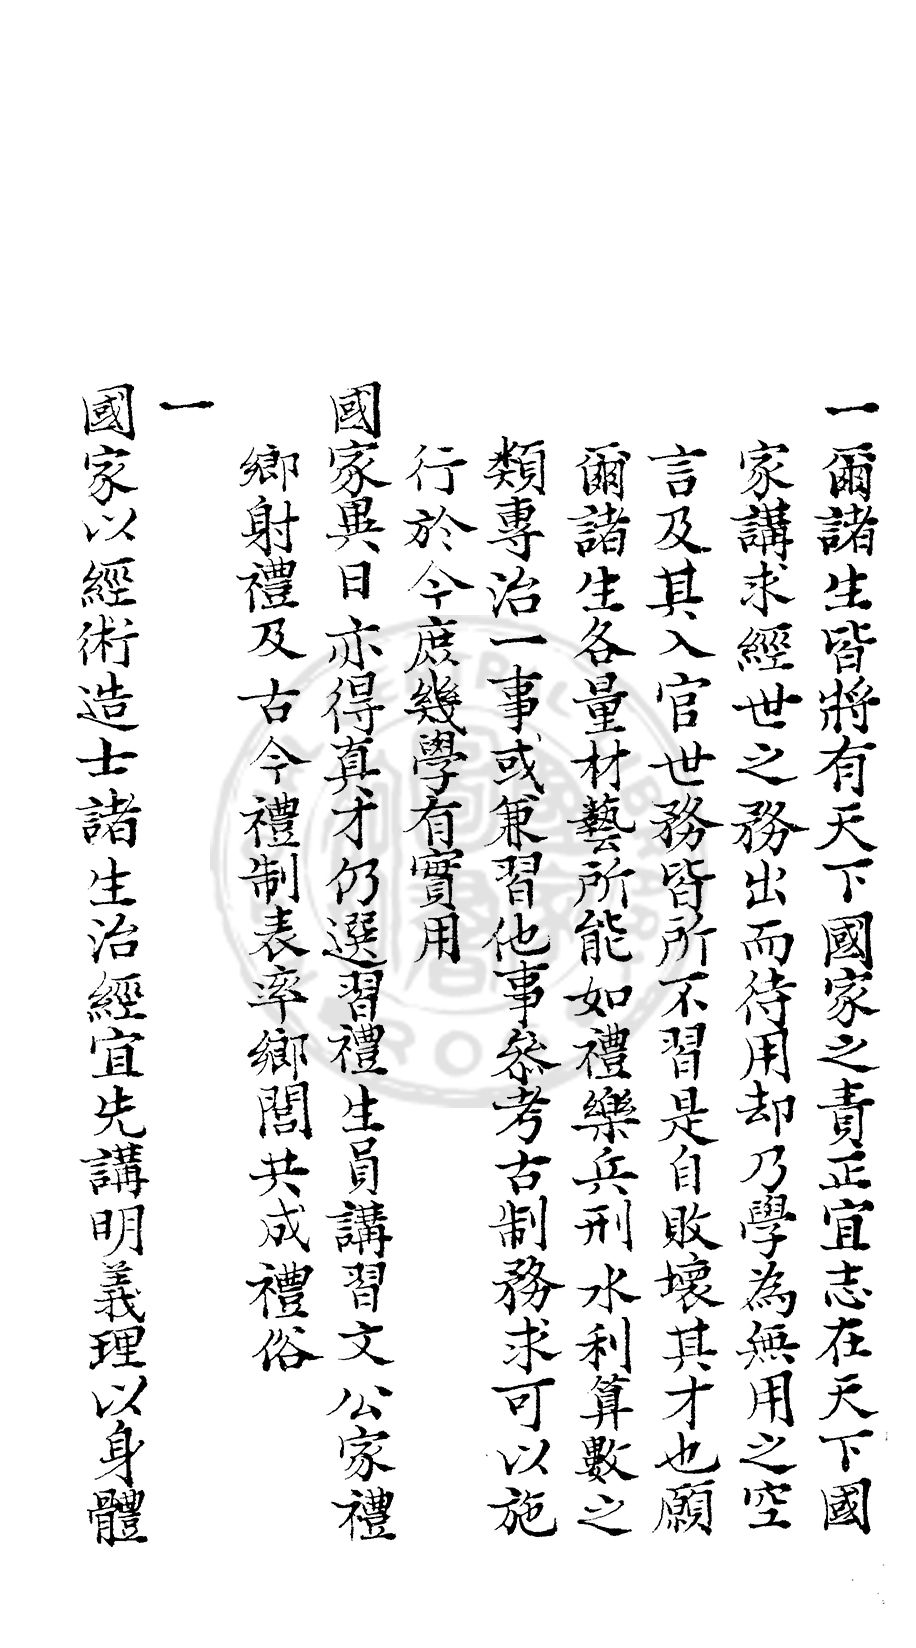 一爾諸生皆將有天下國家之責正宜志在天下國
家講求經世之務出而待用却乃學為無用之空
言及其入官世務皆所不習是自敗壞其才也願
爾諸生各量材藝所能如禮樂兵刑水利算數之
類專治一事或兼習他事叅考古制務求可以施
行於今庶幾學有實用
國家異日亦得真才仍選習禮生員講習文公家禮
鄉射禮及古今禮制表率鄉閭共成禮俗
一
國家以經術造士諸生治經宜先講明義理以身體